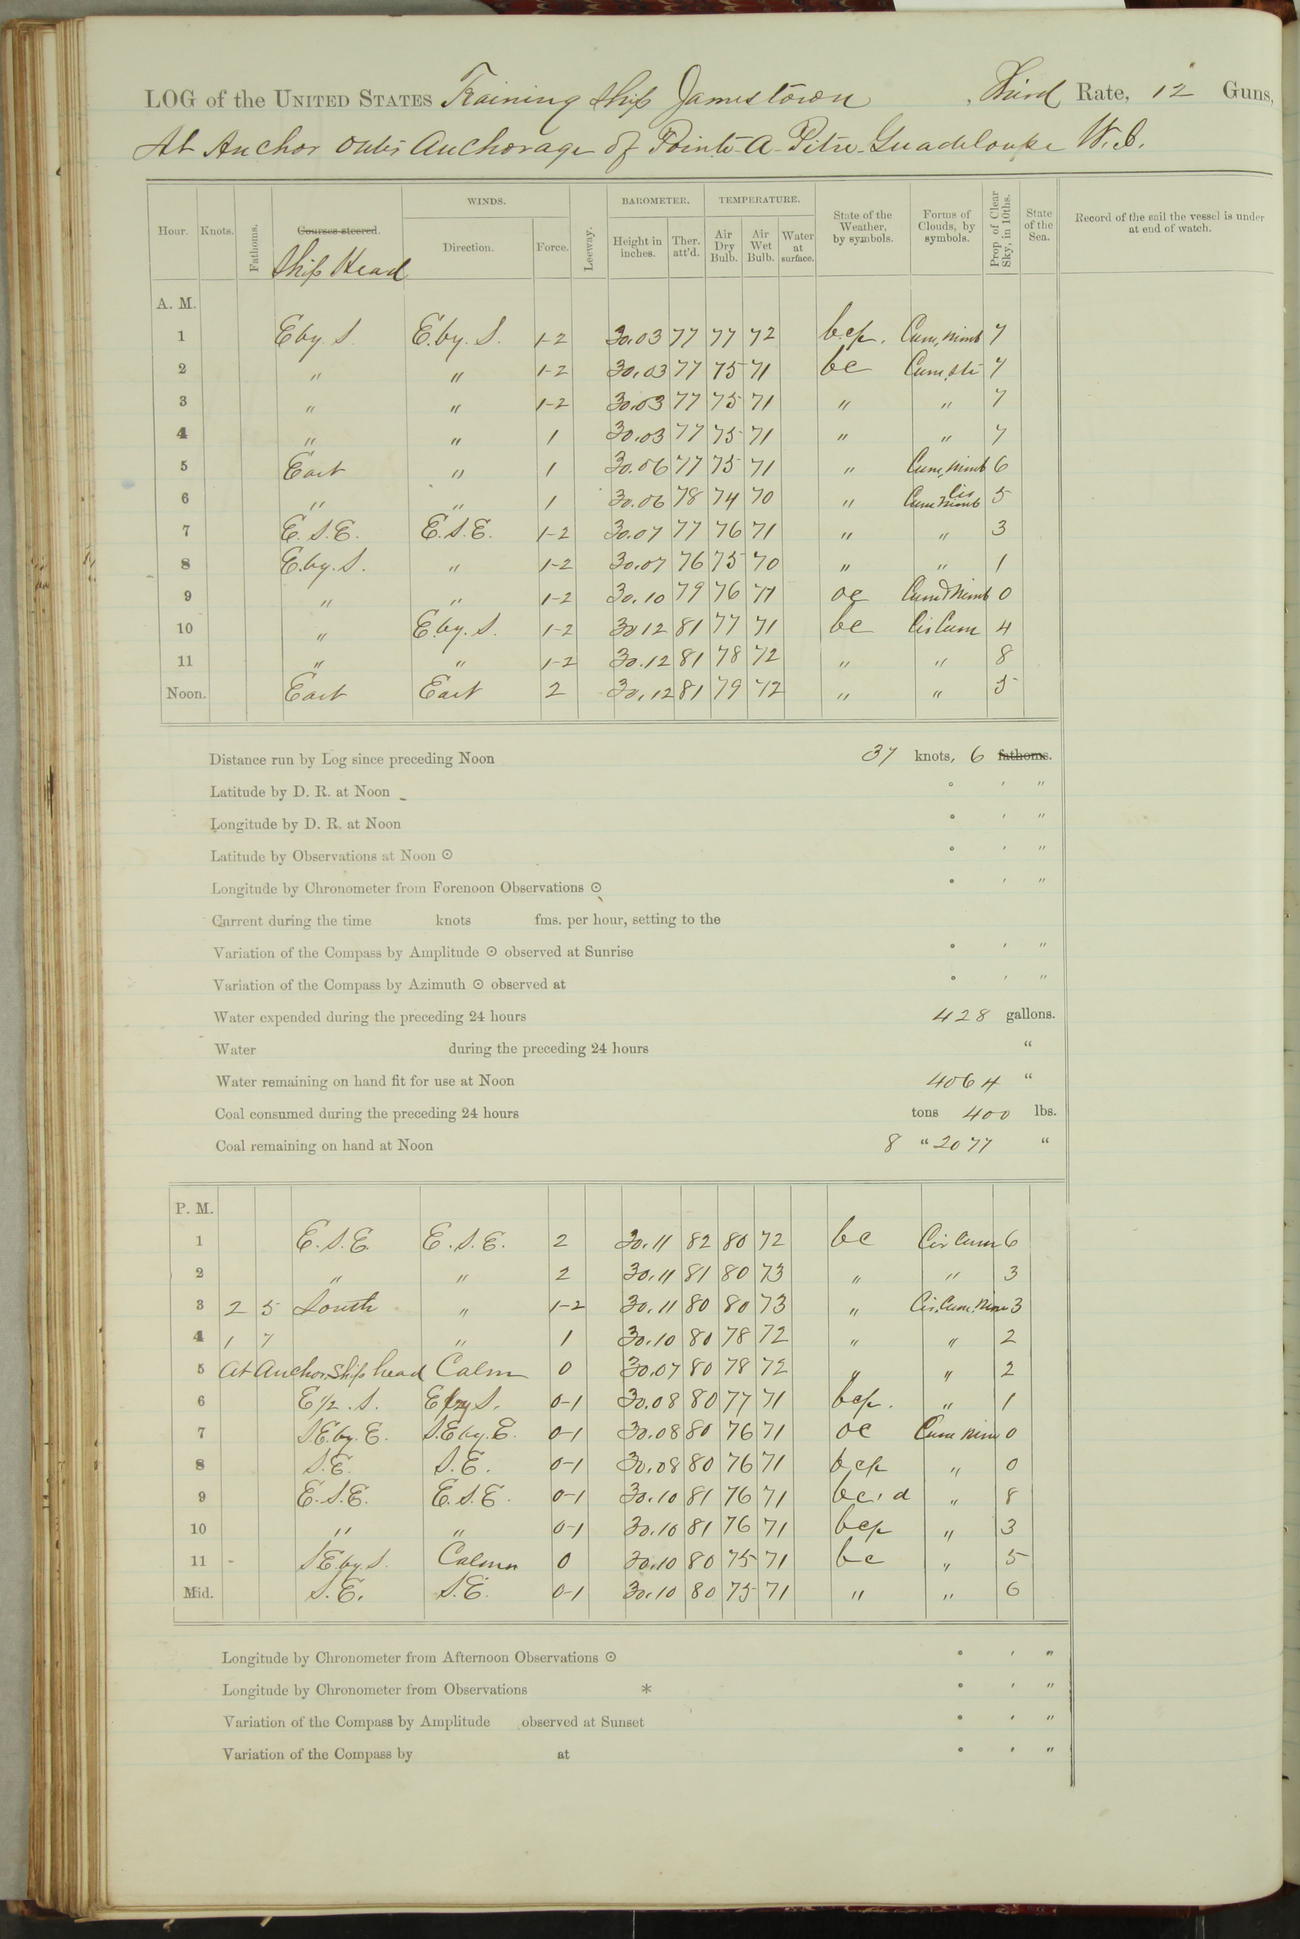 LOG of the UNITED STATES Training Ship Jamestown, Third Rate, 12 Guns,
At Anchor outer Anchorage of Pointe-A-Pitre-Guadeloupe W.I.
WINDS. BAROMETER. TEMPERATURE.
Hour. Knots. Fathoms. Courses steered. Ship Head Direction. Force. Leeway. Height in inches. Ther. att'd. Air Dry Bulb. Air Wet Bulb. Water at surface. State of the Weather, by symbols. Forms of Clouds, by symbols. Prop. of Clear Sky, in 10ths. State of the Sea. Record of the sail the vessel is under at end of watch.
A. M.
1 E by S. E. by. S. 1-2 30.03 77 77 72 b.c.p. Cum, Nimb 7
2 " " 1-2 30.03 77 75 71 bc Cum, Str 7
3 " " 1-2 30.03 77 75 71 " " 7
4 " " 1 30.03 77 75 71 " " 7
5 East " 1 30.06 77 75 71 " Cum, Nimb 6
6 " " 1 30.06 78 74 70 " Cum Cir Nimb 5
7 E. S. E. E. S. E. 1-2 30.07 77 76 71 " " 3
8 E. by. S. " 1-2 30.07 76 75 70 " " 1
9 " " 1-2 30.10 79 76 71 oc Cum & Nimb 0
10 " E. by. S. 1-2 30 12 81 77 71 bc Cir Cum 4
11 " " 1-2 30.12 81 78 72 " " 8
Noon. East East 2 30.12 81 79 72 " " 5
Distance run by Log since preceding Noon 37 knots, 6 fathoms.
Latitude by D. R. at Noon ° ' "
Longitude by D. R. at Noon ° ' "
Latitude by Observations at Noon ☉ ° ' "
Longitude by Chronometer from Forenoon Observations ☉ ° ' "
Current during the time knots fms. per hour, setting to the
Variation of the Compass by Amplitude ☉ observed at Sunrise ° ' "
Variation of the Compass by Azimuth ☉ observed at ° ' "
Water expended during the preceding 24 hours 428 gallons.
Water during the preceding 24 hours "
Water remaining on hand fit for use at Noon 4064 "
Coal consumed during the preceding 24 hours tons 400 lbs.
Coal remaining on hand at Noon 8 " 2077 "
P. M.
1 E. S. E. E. S. E. 2 30.11 82 80 72 bc Cir Cum 6
2 " " 2 30.11 81 80 73 " " 3
3 2 5 South " 1-2 30.11 80 80 73 " Cir. Cum. Nim 3
4 1 7 " 1 30.10 80 78 72 " " 2
5 At Anchor. Ship head Calm 0 30.07 80 78 72 " " 2
6 E 1/2 . S. E by S. 0-1 30.08 80 77 71 bcp. " 1
7 S.E. by. E. S.E by. E. 0-1 30.08 80 76 71 oc Cum Nim 0
8 S. E. S. E. 0-1 30.08 80 76 71 bcp " 0
9 E. S. E. E. S. E. 0-1 30.10 81 76 71 bc, d " 8
10 " " 0-1 30.10 81 76 71 bcp " 3
11 S E by. S. Calm 0 30.10 80 75 71 bc " 5
Mid. S. E. S. E. 0-1 30.10 80 75 71 " " 6
Longitude by Chronometer from Afternoon Observations ☉ ° ' "
Longitude by Chronometer from Observations * ° ' "
Variation of the Compass by Amplitude observed at Sunset ° ' "
Variation of the Compass by at ° ' "